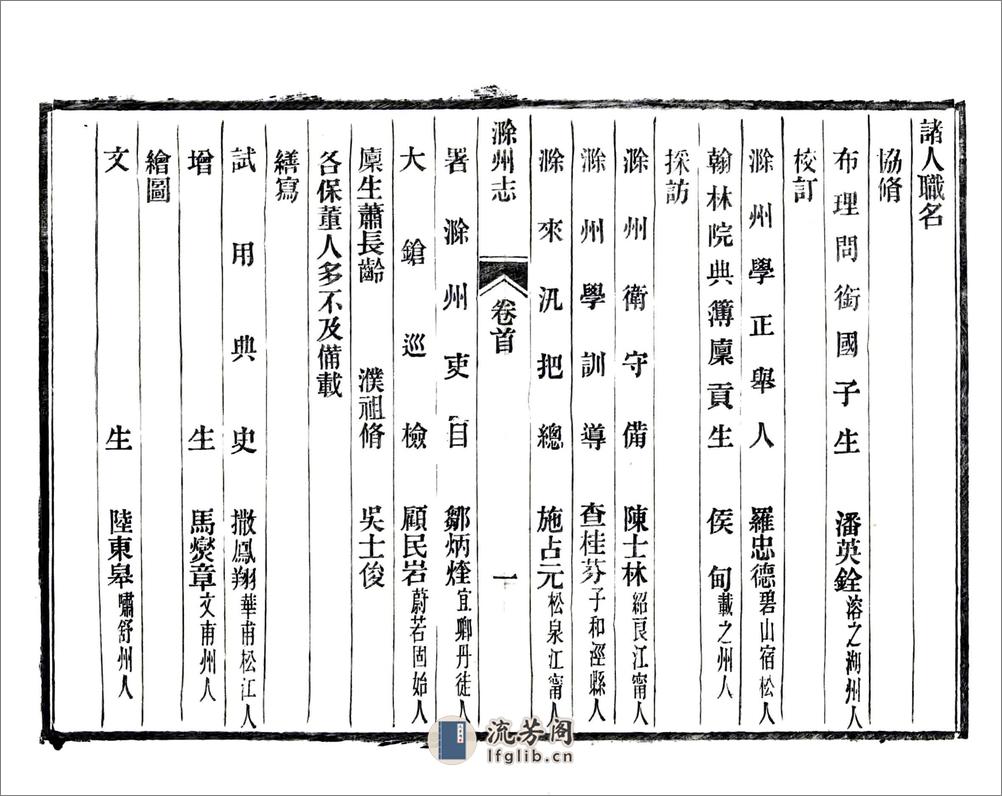 諸人職名
協脩
布理問銜國子生 潘英銓溶之湖州人
校訂
滁州學正舉人 羅忠德碧山宿松人
翰林院典簿廩貢生 侯甸載之州人
採訪
滁州衛守備 陳士林紹良江甯人
滁州學訓導 查桂芬子和涇縣人
滁來汛把總 施占元松泉江甯人
滁州志 卷首 一
署滁州吏目 鄒炳煃宜卿丹徒人
大鎗巡檢 顧民岩蔚若固始人
廩生蕭長齡 濮祖脩 吳士俊
各保董人多不及備載
繕寫
試用典史 撒鳳翔華甫松江人
增生 馬燮章文甫州人
繪圖
文生 陸東皋嘯舒州人
流芳阁
lfglib.cn